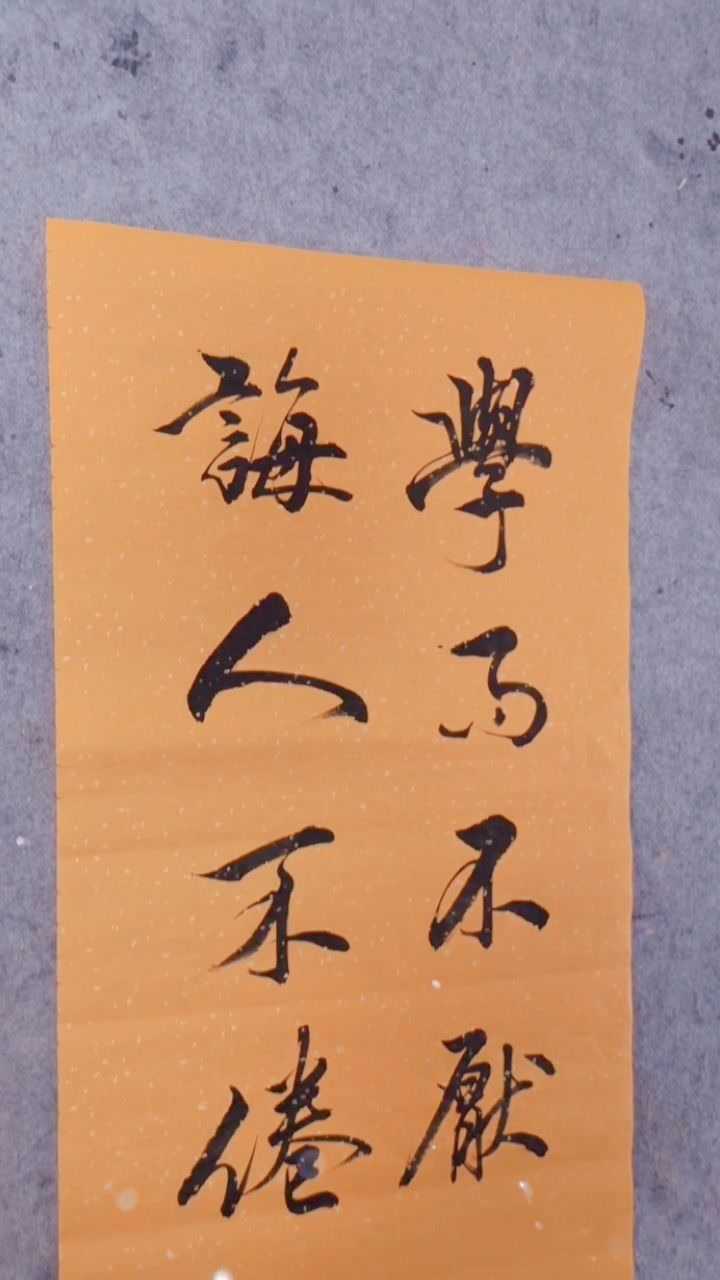 學而不厭
誨人不倦